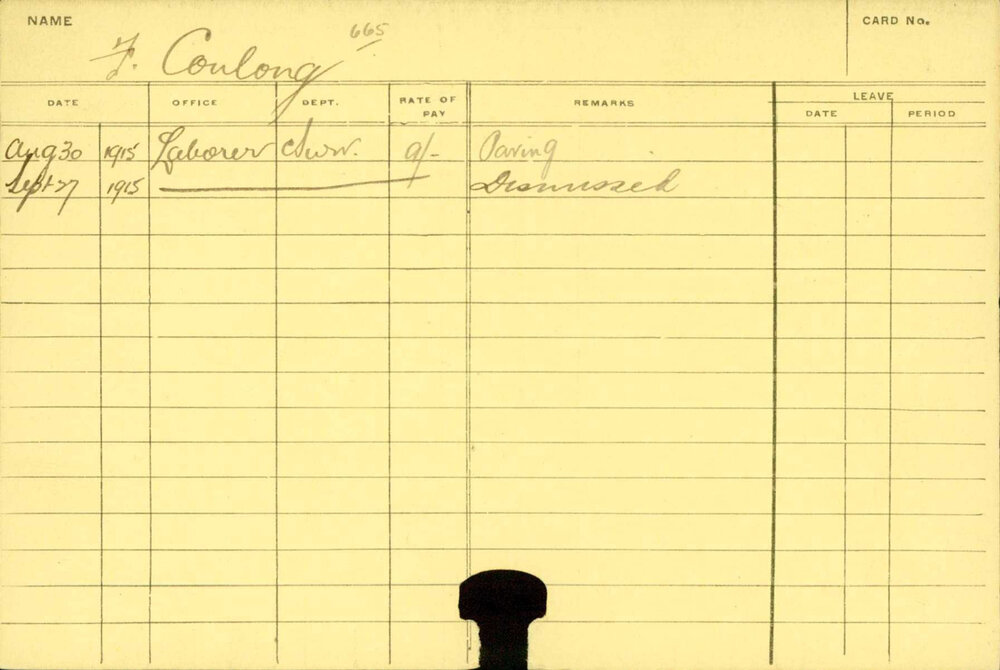 NAME F. Coulong 665 CARD No.
DATE OFFICE DEPT. RATE OF PAY REMARKS LEAVE
DATE PERIOD
Aug 30 1915 Laborer 9/- Paving
Sept 27 1915 Dismissed